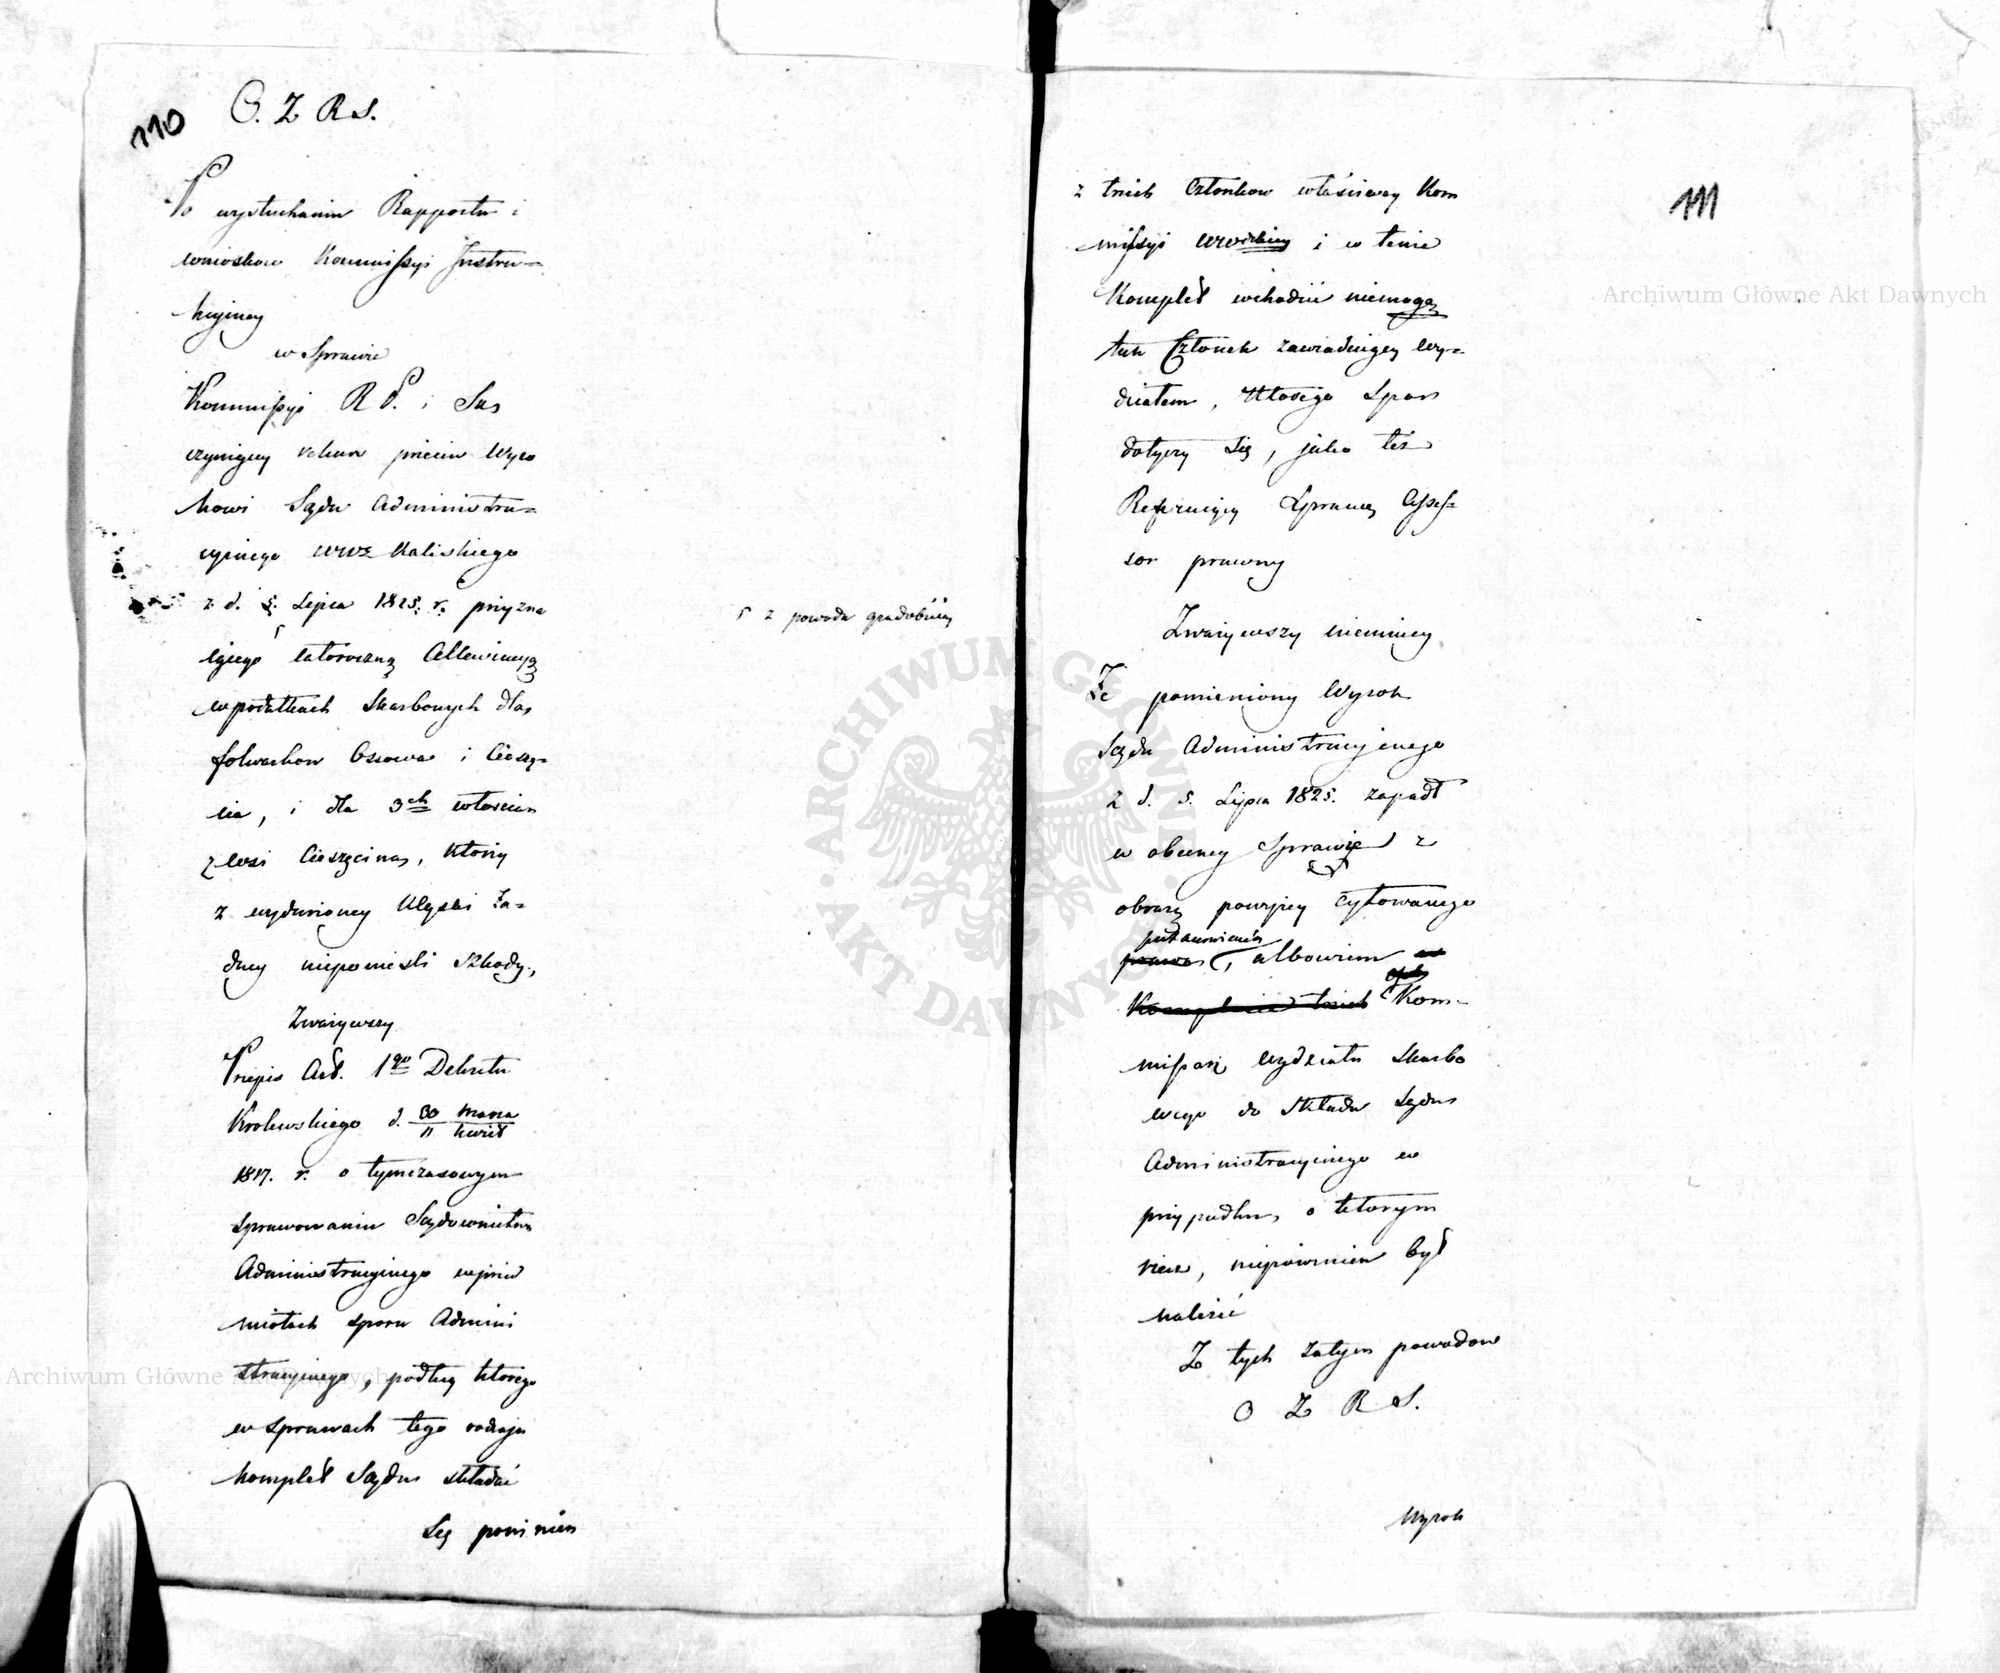 110
O. Z R S.
Po wysłuchaniu Rapportu i
wniosków Kommissyi Instru=
kcyiney
w Sprawie
Kommissyi R P. i Sk
czyniącey rekurs przeciw Wyro
kowi Sądu Administra=
cyinego Wwa Kaliskiego
z d. 5. Lipca 1825. r. przyzna
iącego ┌ całoroczną Allewiacyą
w podatkach Skarbowych dla
folwarkow Ossowa i Cieszę=
cia, i dla 3ch włościan
z wsi Cieszęcina, którzy
z wydarzoney Klęski ża=
dney nieponieśli szkody,
┌ z powodu gradobicia
Zważywszy
Przepis Art. 1go Dekretu
Krolewskiego d. 30 Marca
11 kwiet
1817. r. o tymczasowym
sprawowaniu Sądownictwa
Administracyinego wprzed
miotach sporu Admini
stracyinego, podług ktorego
w sprawach tego rodzaju
komplet Sądu składać
się powinien
111
z trzech Członkow właściwey Kom
missyi Wwodzkiey i w tenże
Komplet wchodzić niemogą
tak Członek zawiaduiący Wy=
działem, którego Spor
dotyczy się, jako też
Referuiący Sprawę Asses=
sor prawny
Zważywszy niemniey
Że pomieniony Wyrok
Sądu Administracyinego
z d. 5. Lipca 1825. zapadł
w obecney Sprawie z
obrazą powyżey cytowanego
postanowienia
prawa, albowiem w
Komplecie trzech Kom=
missarz Wydziału Skarbo
wego do składu Sądu
Administracyinego w
przypadku, o ktorym
rzecz, niepowinien był
należeć
Z tych zatym powodow
O Z R S.
Wyrok
Archiwum Główne Akt Dawnych
Archiwum Główne Akt Dawnych
ARCHIWUM GŁÓWNE · AKT DAWNYCH ·